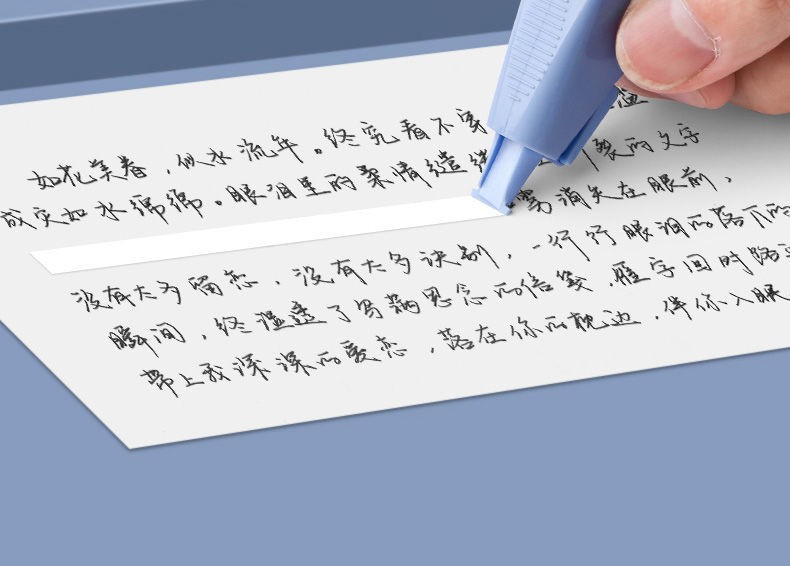 如花美眷，似水流年。终究看不穿
成实如水绵绵。眼泪里的柔情缱绻 裂的文字
雾消失在眼前、
没有太多留恋、没有太多诀别，一行行眼泪的落下的
瞬间，终溢透了写满思念的信笺，雁字回时路
带上我深深的爱恋，落在你的枕边，伴你入眠